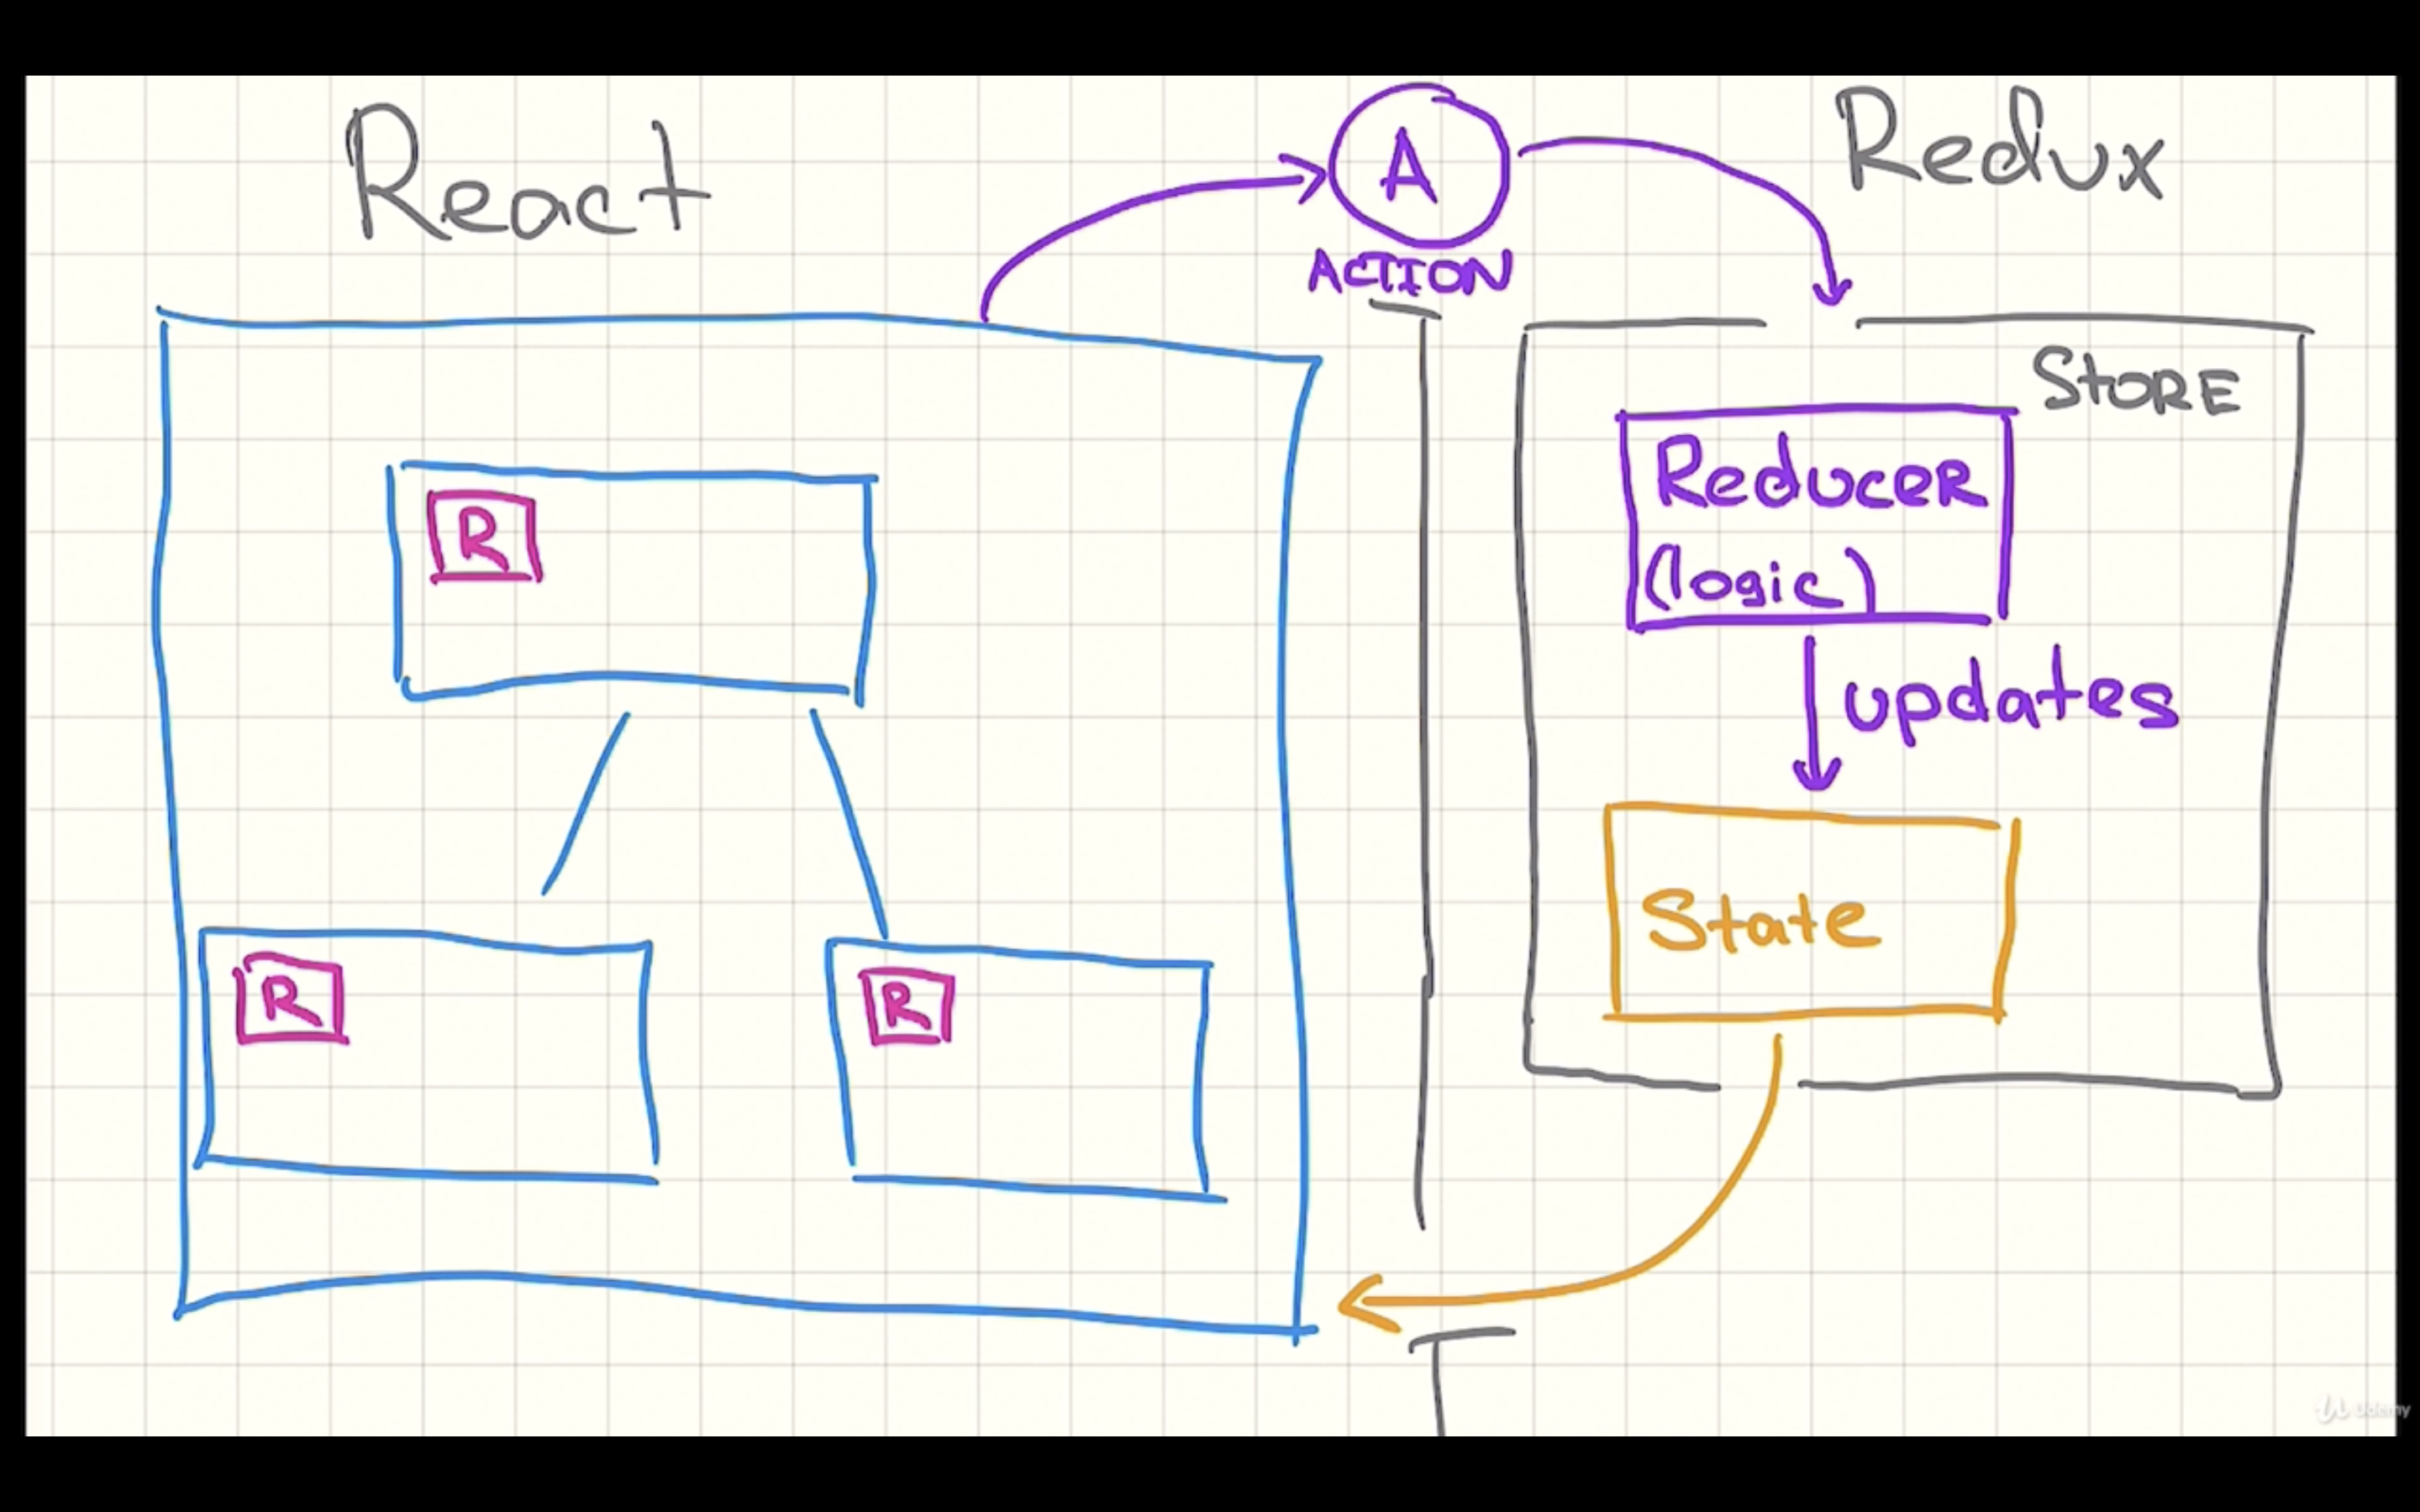 React
A
ACTION
Redux
STORE
R
Reducer
(logic)
updates
R
R
State
Udemy